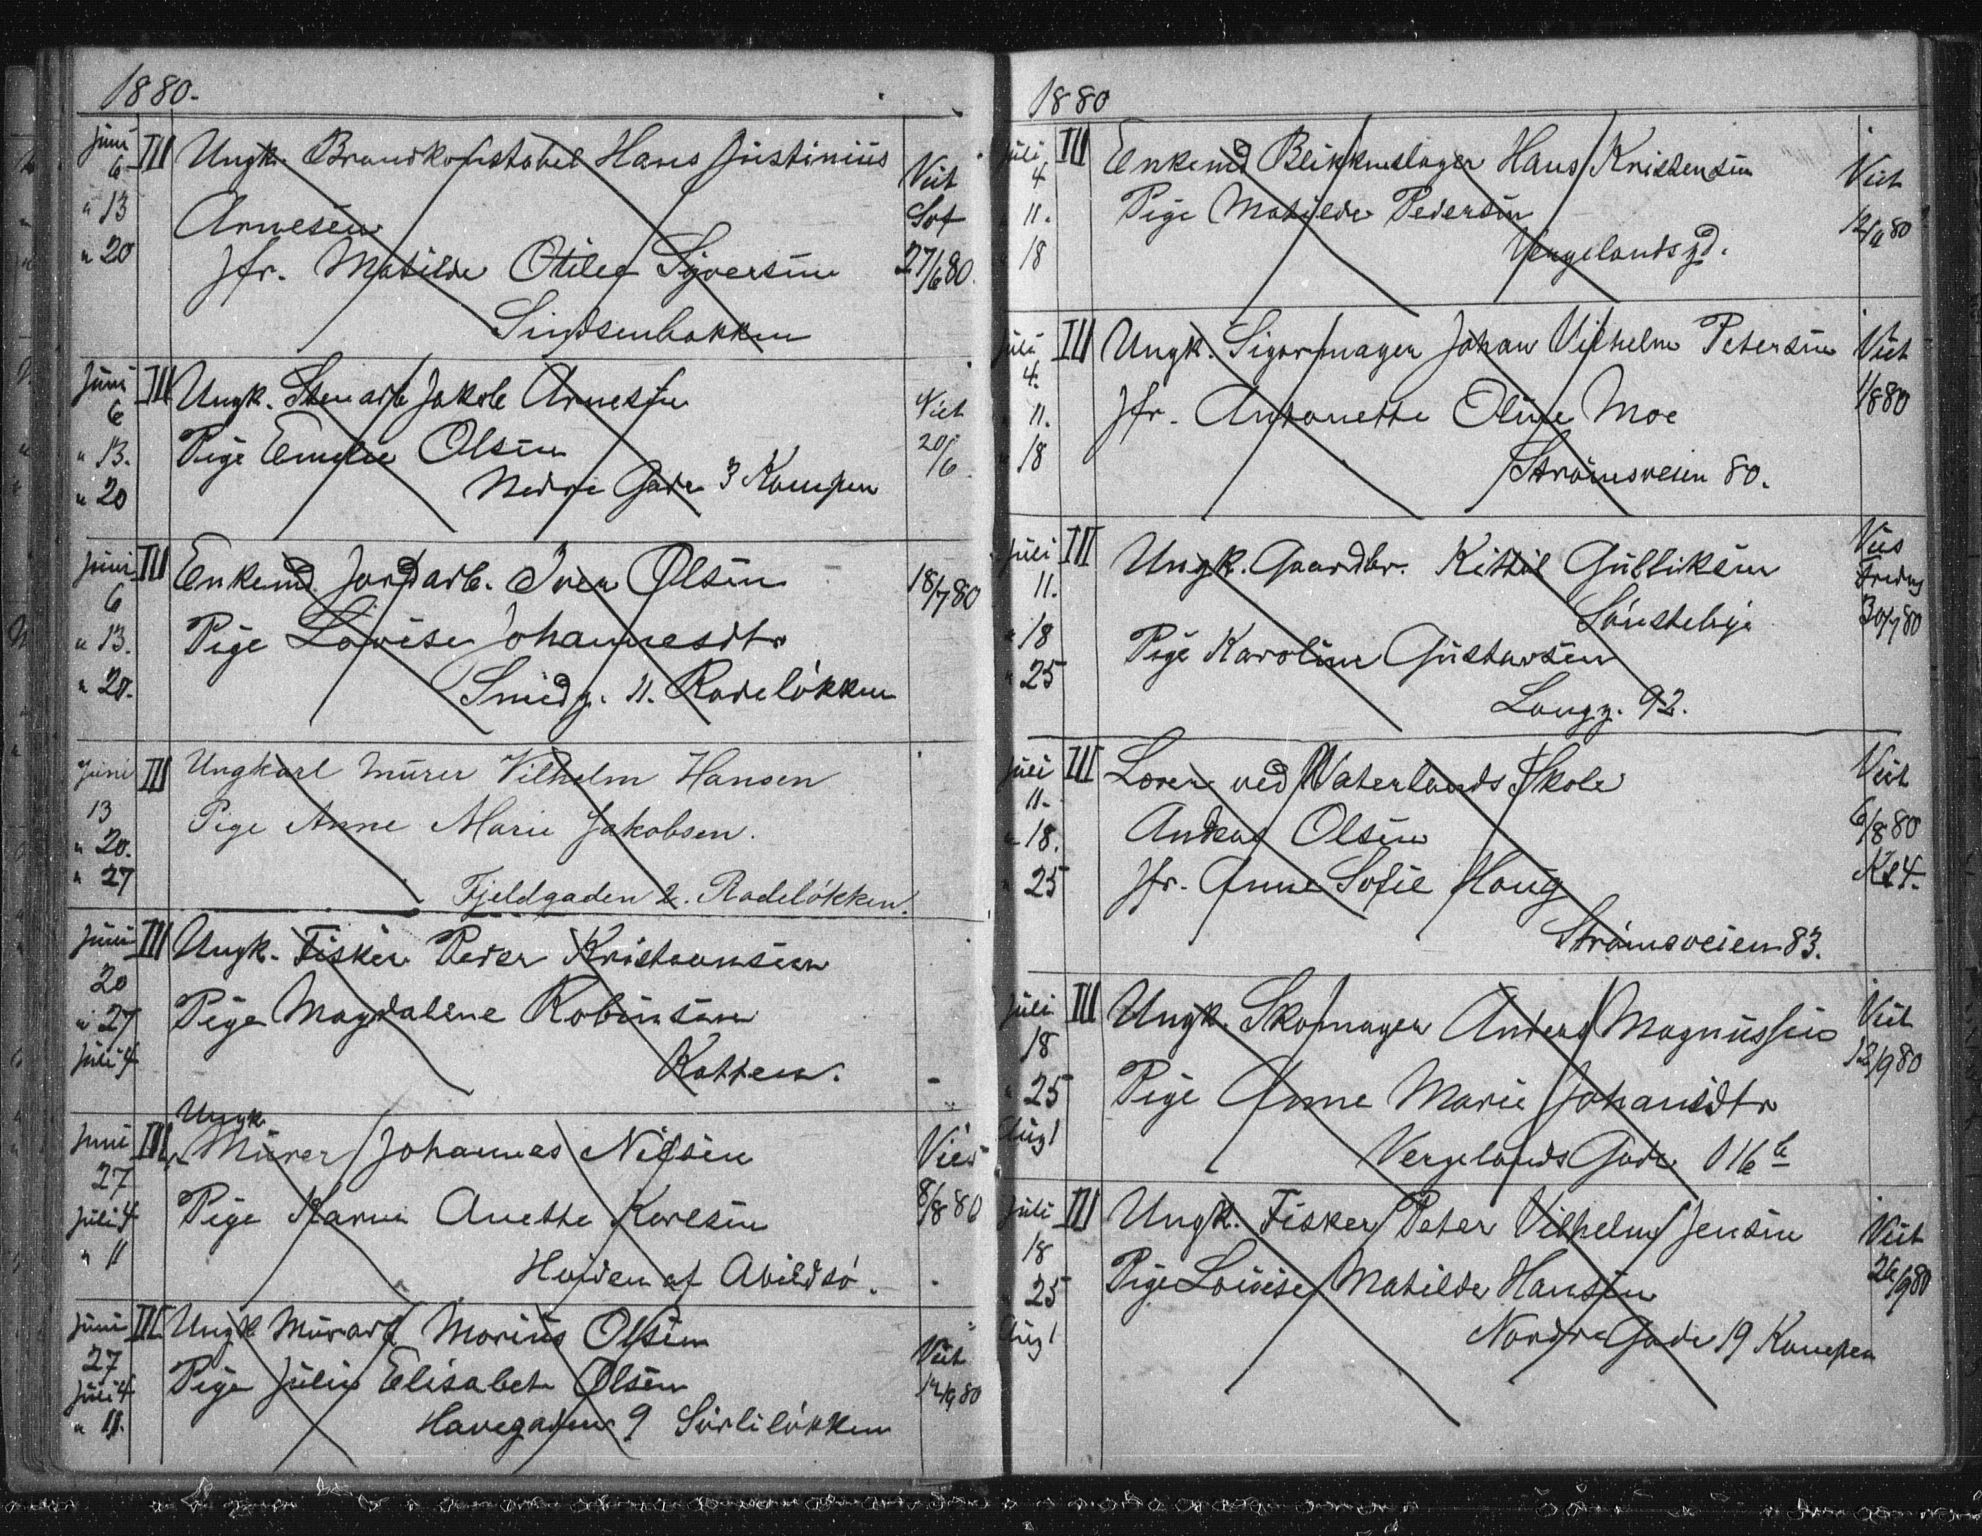 1880.
Juni III Ungk. Brandkonstabel Hans Justinius
6 Viet
" 13 Arnesen Sot
" 20 Jfr. Matilde Otilee Syversen 27/6 80.
Sinsenbakken
Juni III Ungk. Stenarb Jakob Arnesen
6 Viet
" 13. Pige Emelie Olsen 20/6
" 20 Nedre Gade 3 Kampen
Juni III Enkemd. Jordarb. Iver Olsen 18/7 80
6
" 13. Pige Lovise Johannesdtr
" 20. Smedg. 11. Rodeløkken
Juni III Ungkarl Murer Vilhelm Hansen
13 Pige Anne Marie Jakobsen.
" 20.
" 27 Fjeldgaden 2. Rodeløkken.
Juni III Ungk. Fisker Peder Kristiansen
20
" 27 Pige Magdalene Robinsen
Juli 4 Kathen.
Ungk.
Juni III Murer Johannes Nilsen Viet
27
Juli 4 Pige Karen Anette Karlsen 8/8 80
" 11 Heiden af Abildsø.
Juni III Ungk Murarb Marius Olsen
27 Viet
Juli 4 Pige Julie Elisabet Olsen 12/9 80
" 11. Havegaden 9 Sørliløkken
1880
Juli III Enkemd Blikkenslager Hans Kristensen Viet
4
" 11. Pige Matilde Pedersen 12/9 80
" 18 Vergelandsgd.
Juli III Ungk. Sigarmager Johan Vilhelm Petersen Viet
4. 1/8 80
" 11. Jfr. Antonette Oline Moe
" 18 Strømsveien 80.
Juli III Ungk. Gaardbr. Kittil Gulliksen Vies
11. Fredag
" 18 Sønstebyi 30/7 80
Pige Karoline Gustavsen
" 25 Langg. 92.
Juli III Lærer ved Vaterlands Skole Viet
11.
" 18. Andreas Olsen 6/8 80
" 25 Jfr. Anne Sofie Haug Kl 4.
Strømsveien 83.
Juli III Ungk. Skomager Anders Magnussen Viet
18 12/9 80
" 25 Pige Anne Marie Johansdtr
Aug 1 Vergelands Gade 16 b
Juli III Ungk. Fisker Peter Vilhelm Jensen Viet
18
" 25 Pige Lovise Matilde Hansen 26/9 80
Aug 1 Nordre Gade 19 Kampen